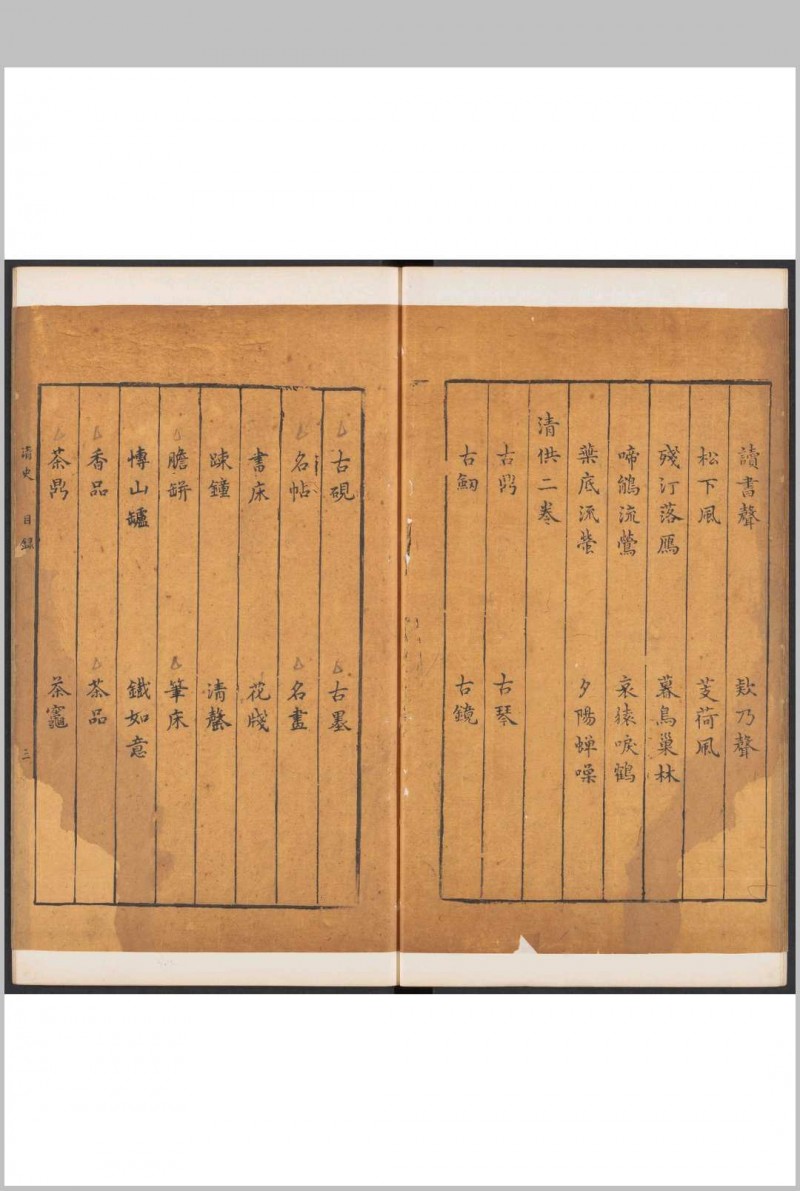 讀書聲 欵乃聲
松下風 芰荷風
殘汀落鴈 暮鳥巢林
啼鵤流鶯 哀猿唳鶴
藥底流螢 夕陽蝉噪
清供二卷
古鼎 古琴
古劒 古鏡
古硯 古墨
名帖 名畫
書床 花牋
踈鐘 清罄
膽缾 筆床
愽山罏 鐵如意
香品 茶品
茶鼎 茶竈
清史 目録 三